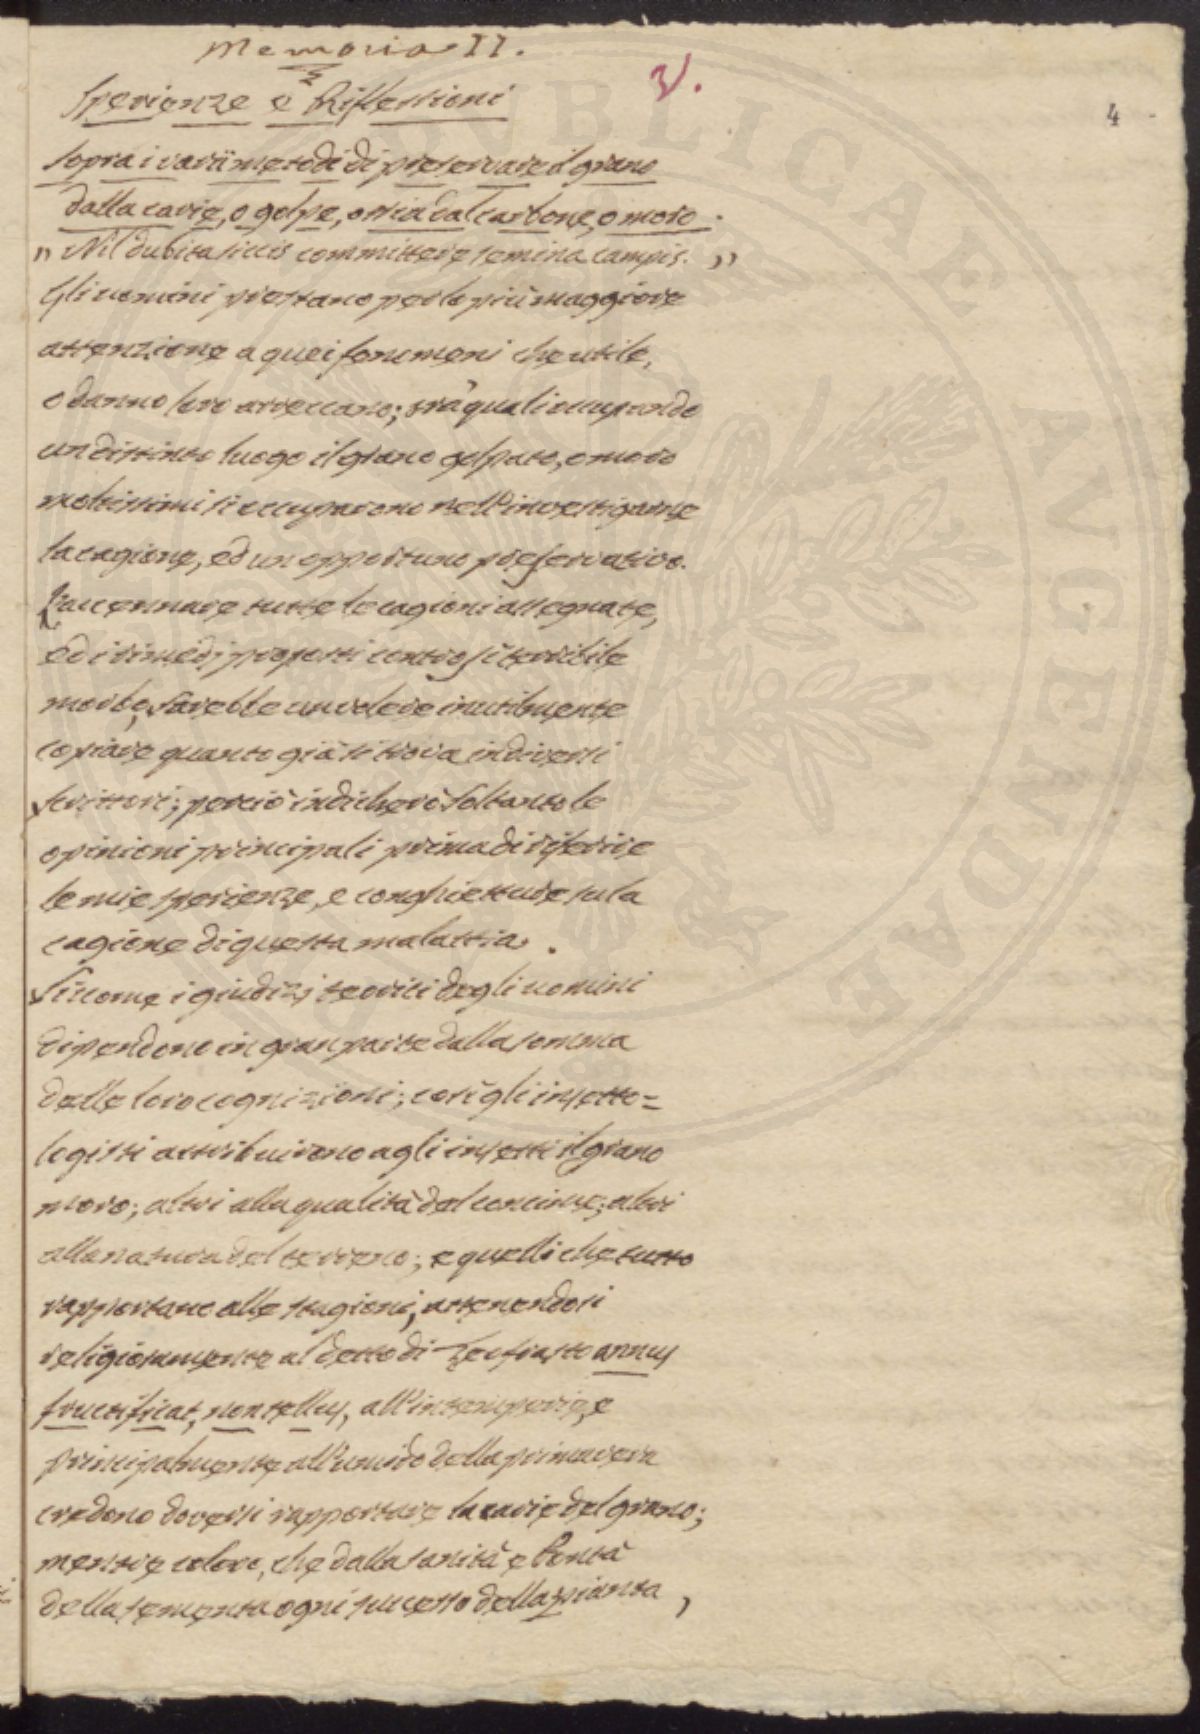 Memoria II.
2/.
4
Sperienze e Riflessioni
sopra i varii metodi di preservare il grano
dalla carie, o golpe, ossia dal carbone, o moro.
" Nil dubita siccis committere semina campis. "
Gli uomini prestano per lo più maggiore
attenzione a quei fenomeni che utile,
o danno loro arreccano; frà quali occupando
un distinto luogo il grano golpato, o moro
moltissimi si occuparono nell'investigarne
la cagione, ed un opportuno preservativo.
L'accennare tutte le cagioni assegnate,
ed i rimedj proposti contro sì terribile
morbo, sarebbe un volere inutilmente
copiare quanto già si trova in diversi
scrittori; perciò indicherò soltanto le
opinioni principali prima di riferire
le mie sperienze, e conghietture sula
cagione di questa malattia.
Siccome i giudizj teorici degli uomini
dipendono in gran parte dalla somma
delle loro cognizioni; così gli insetto=
logisti attribuirono agli insetti il grano
moro; altri alla qualità del concime; altri
alla natura del terreno; e quelli che tutto
rapportano alle stagioni, attenendosi
religiosamente al detto di Teofrasto annus
fructificat, non tellus, all'intemperie, e
principalmente all'umido della primavera
credono doversi rapportare la carie del grano;
mentre coloro, che dalla sanità e bontà
della sementa ogni successo della pianta,
PVBLICAE AVGENDAE